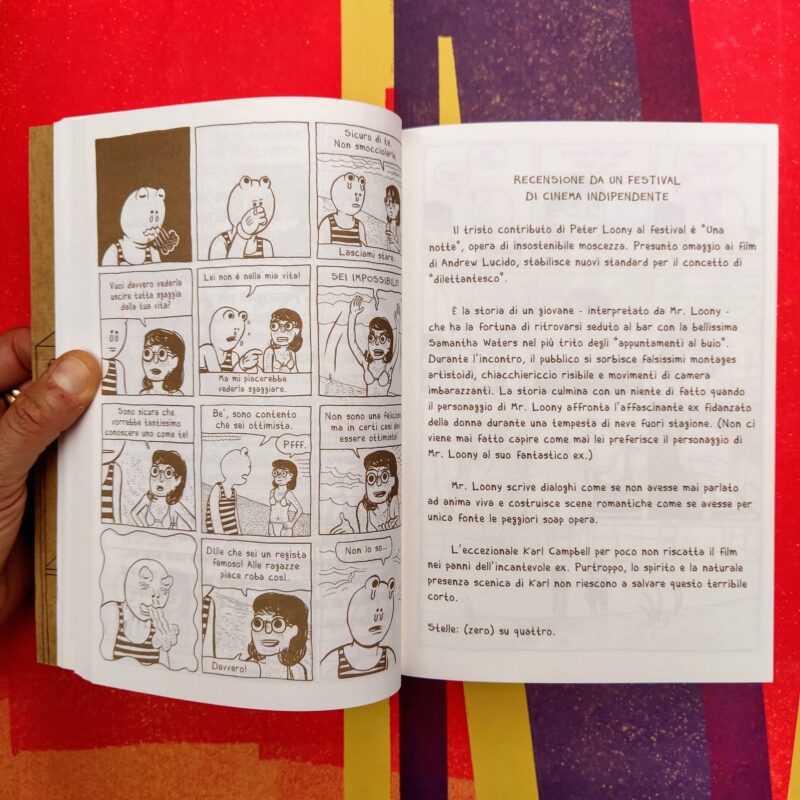 Sicuro di te.
Non smocciolarle
Lasciami stare.
Vuoi davvero vederla
uscire tutta sgaggia
dalla tua vita?
Lei non è nella mia vita!
Ma mi piacerebbe
vederla sgaggiare.
SEI IMPOSSIBILE!
Sono sicura che
vorrebbe tantissimo
conoscere uno come te!
Be', sono contento
che sei ottimista.
Pfff.
Non sono una
ma in certi casi
essere ottimista!
Dille che sei un regista
famoso! Alle ragazze
piace roba così.
Davvero!
Non lo so...
RECENSIONE DA UN FESTIVAL
DI CINEMA INDIPENDENTE
Il tristo contributo di Peter Loony al festival è "Una
notte", opera di insostenibile moscezza. Presunto omaggio ai film
di Andrew Lucido, stabilisce nuovi standard per il concetto di
"dilettantesco".
È la storia di un giovane - interpretato da Mr. Loony -
che ha la fortuna di ritrovarsi seduto al bar con la bellissima
Samantha Waters nel più trito degli "appuntamenti al buio".
Durante l'incontro, il pubblico si sorbisce falsissimi montages
artistoidi, chiacchiericcio risibile e movimenti di camera
imbarazzanti. La storia culmina con un niente di fatto quando
il personaggio di Mr. Loony affronta l'affascinante ex fidanzato
della donna durante una tempesta di neve fuori stagione. (Non ci
viene mai fatto capire come mai lei preferisce il personaggio di
Mr. Loony al suo fantastico ex.)
Mr. Loony scrive dialoghi come se non avesse mai parlato
ad anima viva e costruisce scene romantiche come se avesse per
unica fonte le peggiori soap opera.
L'eccezionale Karl Campbell per poco non riscatta il film
nei panni dell'incantevole ex. Purtroppo, lo spirito e la naturale
presenza scenica di Karl non riescono a salvare questo terribile
corto.
Stelle: (zero) su quattro.